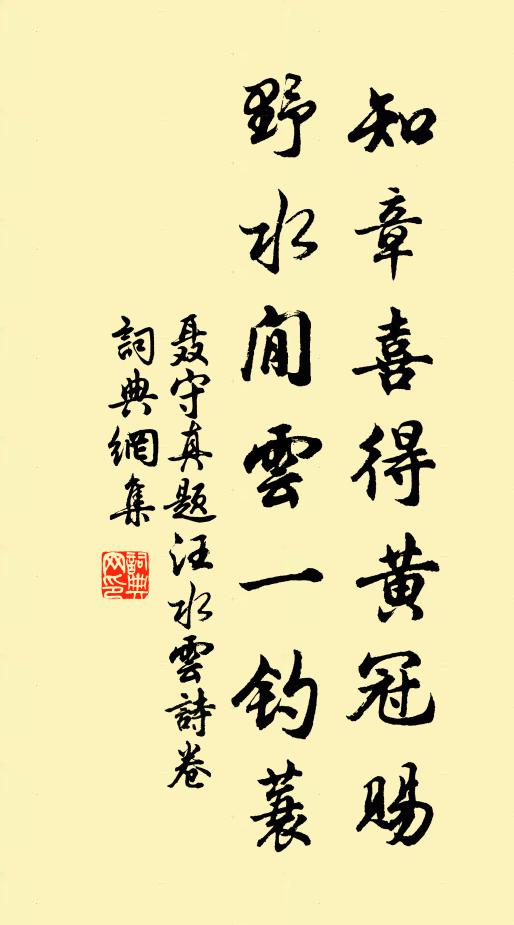 知章喜得黃冠賜
野水閒雲一釣蓑
聂守真题汪水雲詩卷
詞典網集
詞典網印